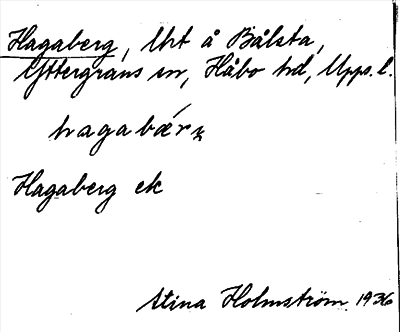 Hagaberg, lht å Bålsta,
Yttergrans sn, Håbo hd, Upps. l.
hagabærɩ̨
Hagaberg ek
Stina Holmström 1936